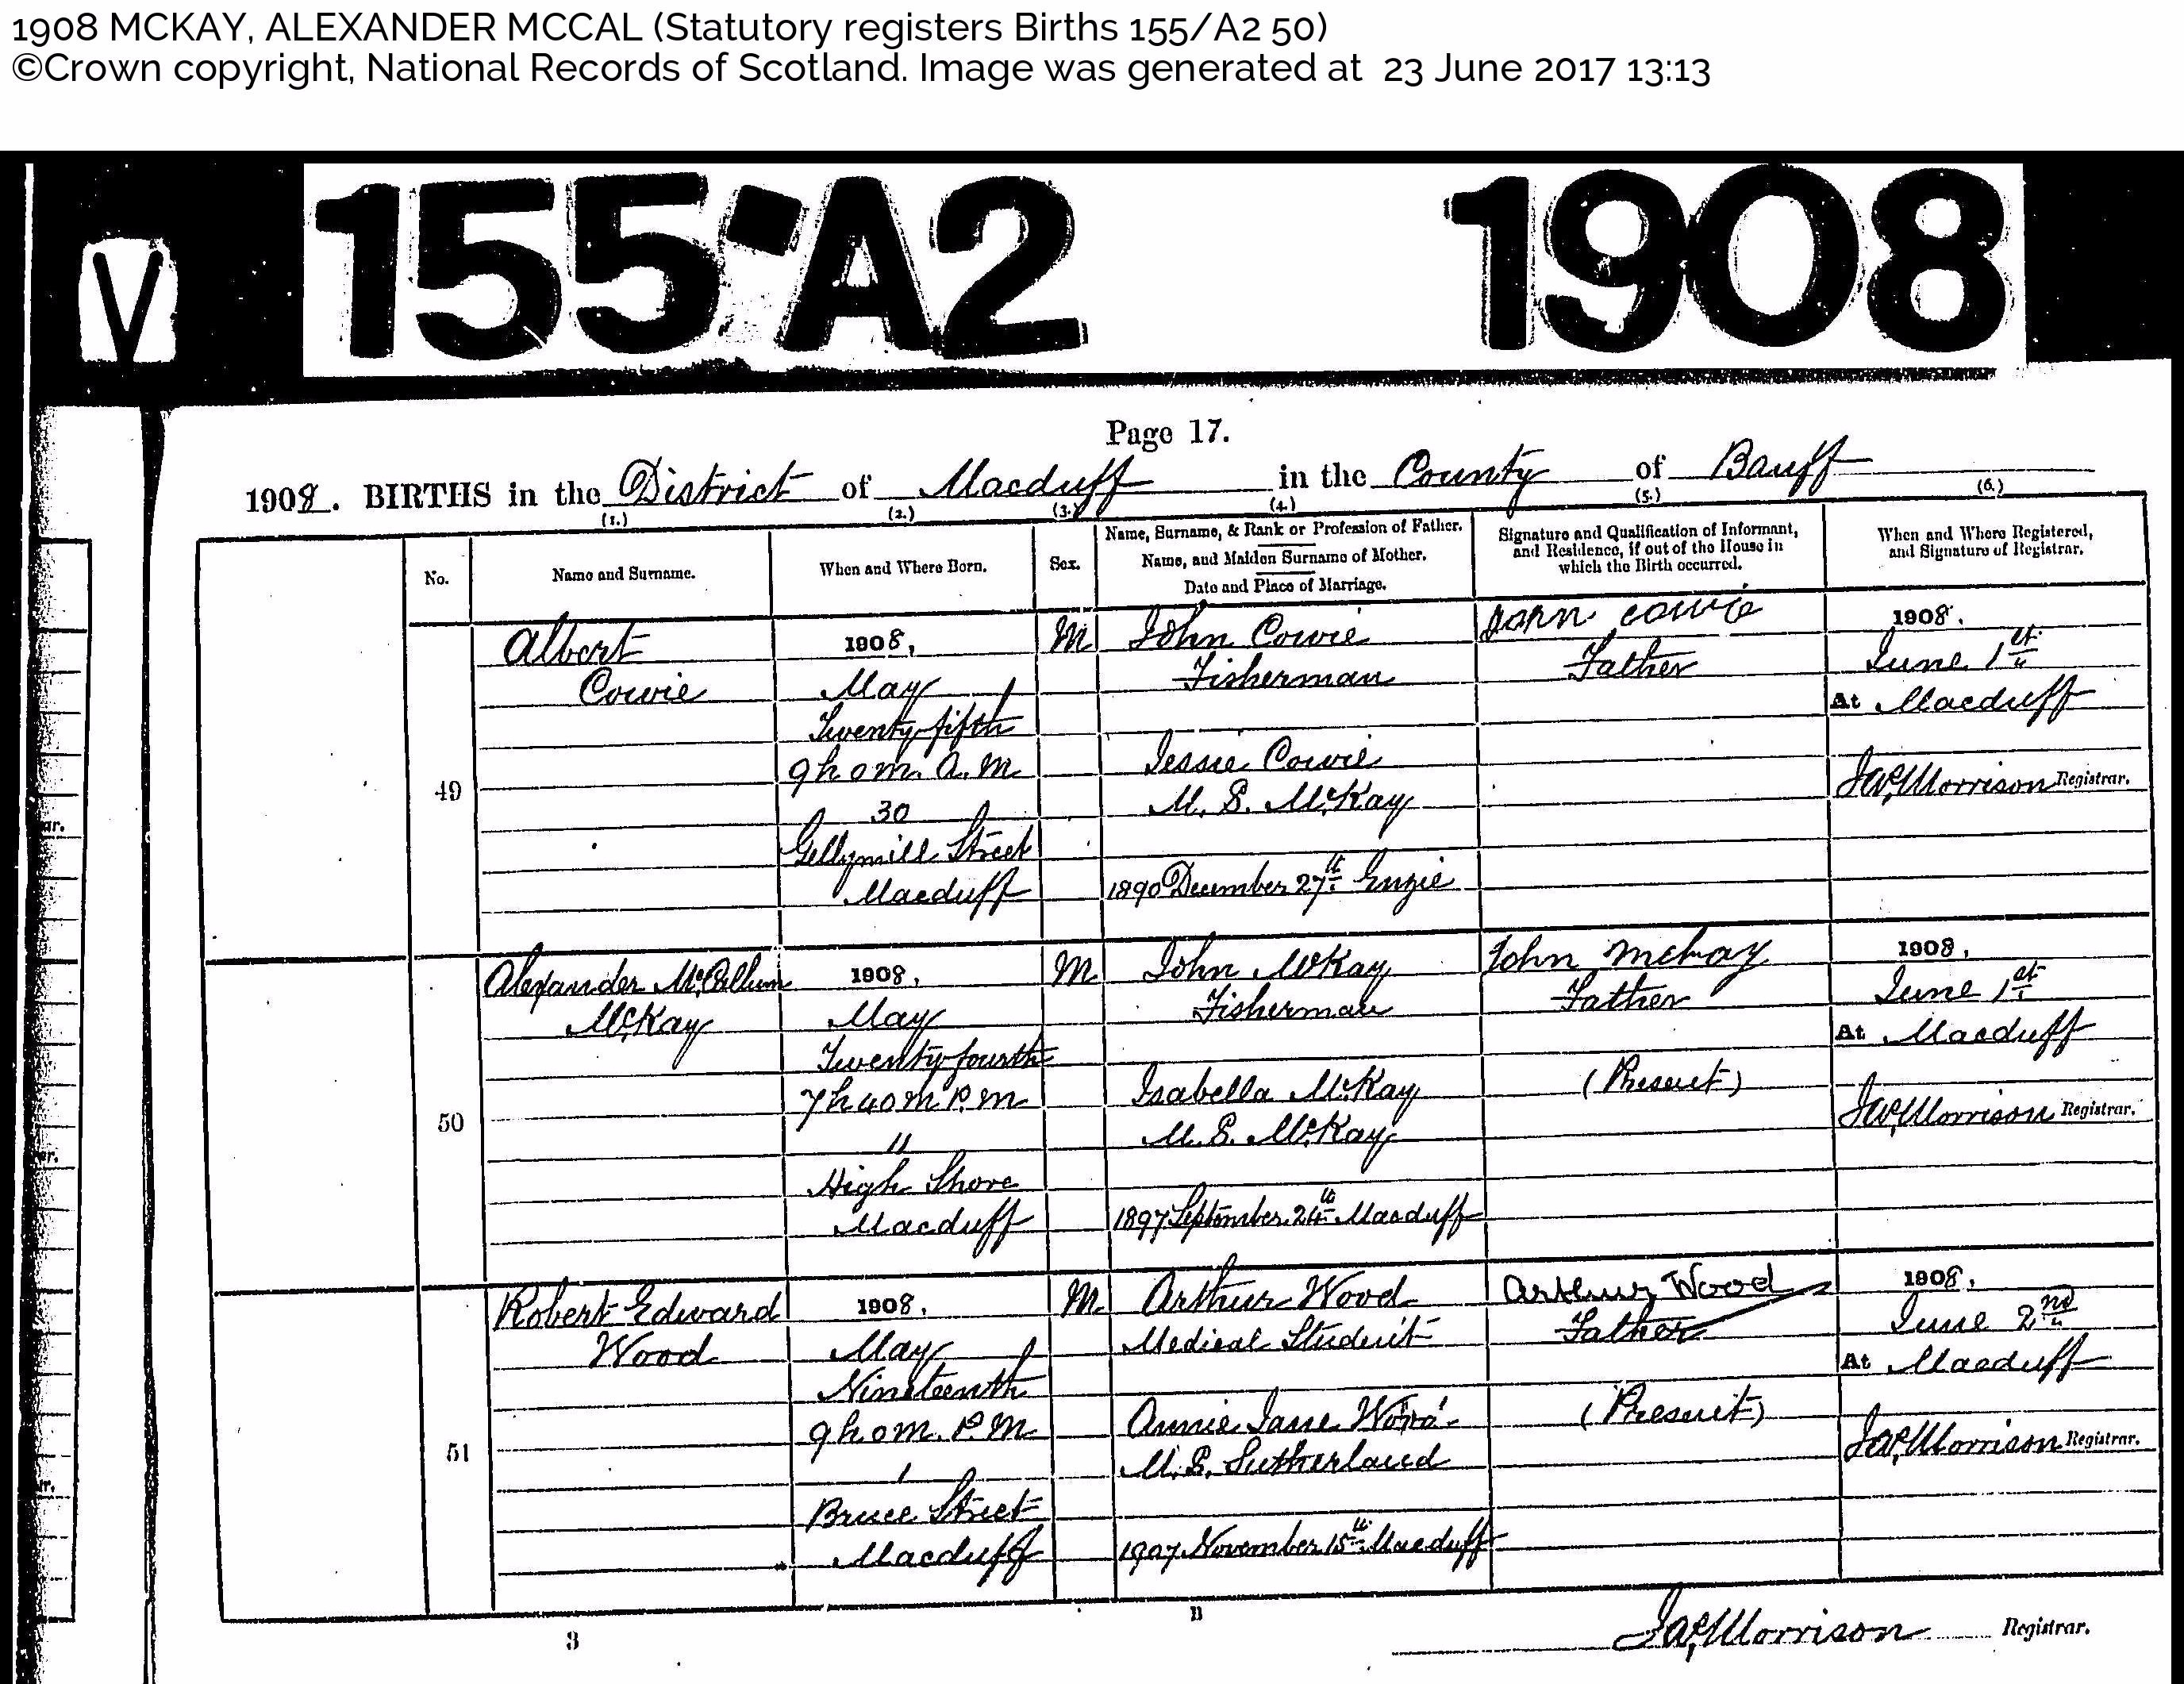 1908 MCKAY, ALEXANDER MCCAL (Statutory registers Births 155/A2 50)
©Crown copyright, National Records of Scotland. Image was generated at 23 June 2017 13:13
V
155·A2 1908
Page 17.
1908. BIRTHS in the District of Macduff in the County of Banff
(1.) (2.) (3.) (4.) (5.) (6.)
No.
Name and Surname.
When and Where Born.
Sex.
Name, Surname, & Rank or Profession of Father.
Name, and Maiden Surname of Mother.
Date and Place of Marriage.
Signature and Qualification of Informant,
and Residence, if out of the House in
which the Birth occurred.
When and Where Registered,
and Signature of Registrar.
49
Albert
Cowie
1908,
May
Twenty fifth
9h 0m. A.M.
30
Gellymill Street
Macduff
M
John Cowie
Fisherman
Jessie Cowie
M.S. McKay
1890 December 27th Enzie
John Cowie
Father
1908.
June 1st
At Macduff
Jas. Morrison Registrar.
50
Alexander McCallum
McKay
1908,
May
Twenty fourth
7h 40m P.m
11
High Shore
Macduff
M
John McKay
Fisherman
Isabella McKay
M.S. McKay
1897 September 24th Macduff
John Mckay
Father
(Present)
1908,
June 1st
At Macduff
Jas. Morrison Registrar.
51
Robert Edward
Wood
1908,
May
Nineteenth
9h 0m. P.M.
1
Bruce Street
Macduff
M.
Arthur Wood
Medical Student
Annie Jane Wood
M.S. Sutherland
1907 November 15th Macduff
Arthur Wood
Father
(Present)
1908,
June 2nd
At Macduff
Jas. Morrison Registrar.
3
B
Jas. Morrison Registrar.